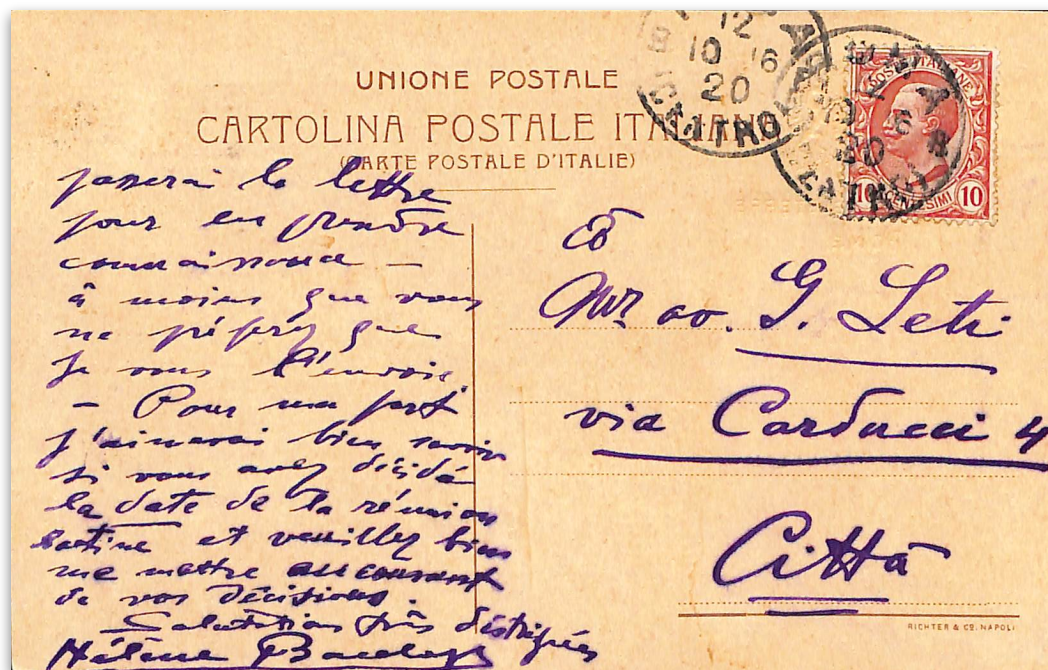 UNIONE POSTALE
CARTOLINA POSTALE ITALIANA
(CARTE POSTALE D'ITALIE)
POSTE ITALIANE
10 CENTESIMI 10
12
10 16
20
passerai la lettre
pour en prendre
connaissance —
à moins que vous
ne préférez que
je vous l'envoie.
— Pour ma part
j'aimerai bien savoir
si vous avez décidé
la date de la réunion
latine et veuillez bien
me mettre au courant
de vos décisions.
Salutations très distinguées
Hélène
Mr av. G. Leti
via Carducci 4
Città
RICHTER & Cº. NAPOLI